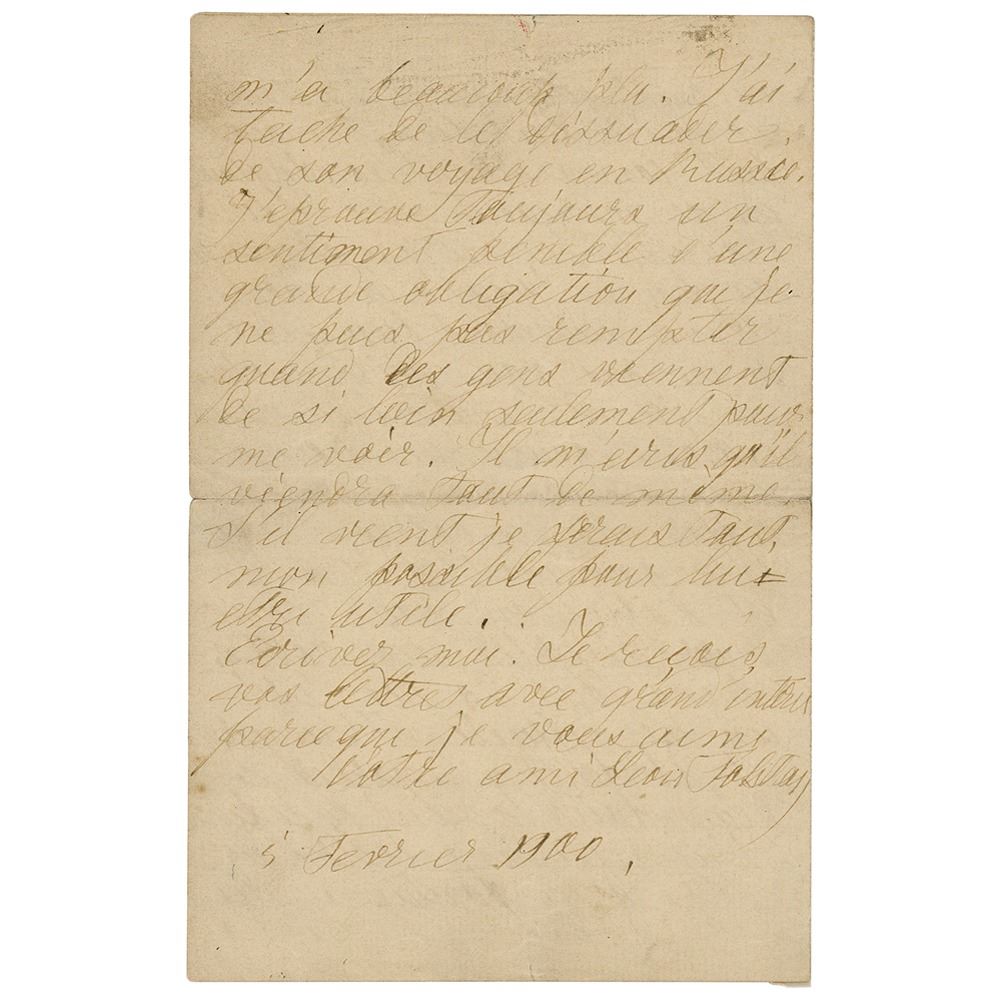 m'a beaucoup plu. J'ai
tache de le dissuader
de son voyage en Russie.
J'eprouve toujours un
sentiment penible d'une
grande obligation que je
ne puis pas remplir
quand des gens viennent
de si loin seulement pour
me voir. Il m'ecris qu'il
viendra tout de même.
S'il vient je ferais tout
mon possible pour lui
etre utile.
Ecrivez moi. Je reçois
vos lettres avec grand interet
parceque je vous aime
Votre ami Leon Tolstoy
5 Fevrier 1900.